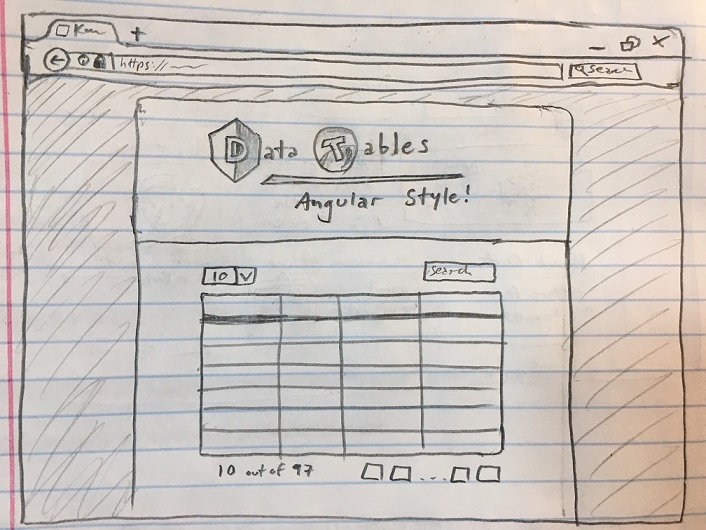 +
https://
Search
Data Tables
Angular Style!
10 v
Search
10 out of 97
...